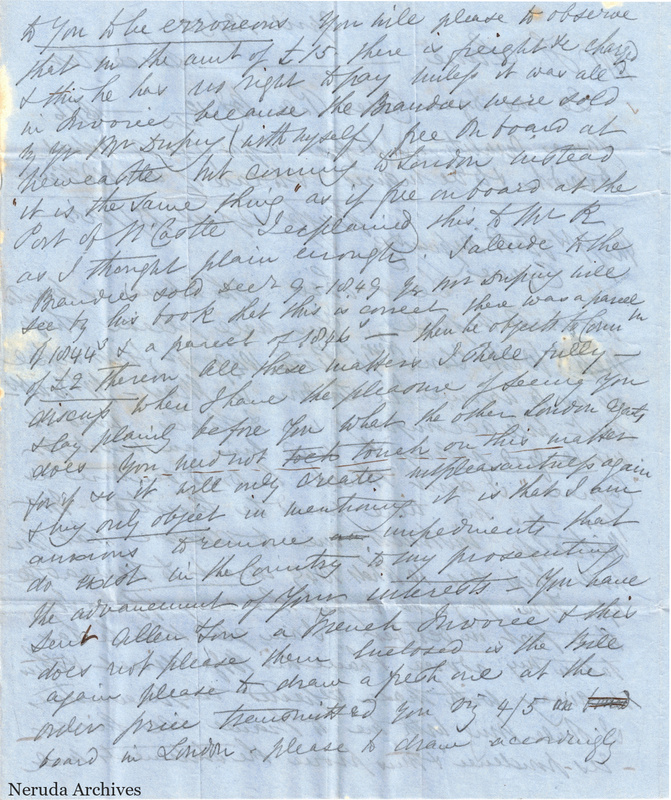 to You to be erroneous You will please to observe
that in the amt of £15 there is freight &c charg'd
& this he has no right to pay unless it was all'd
in Invoice because the Brandies were sold
by Yr Mr Dupuy (with myself) free On board at
Newcastle but coming to London instead
it is the same thing as if free on board at the
Port of N'Castle I explained this to Mr R
as I thought plain enough. I alude to the
Brandies sold Decr 9 - 1849 Yr Mr Dupuy will
see by his book that this is correct there was a parcel
of 1844s & a parcel of 1846s — then he objects to Comn
of £2 thereon all these matters I shall fully —
discuss when I have the pleasure of seeing You
& lay plainly before You what the other London
does You need not touch on this matter
for if so it will only create unpleasantness again
& my only object in mentioning it is that I am
anxious to remove impediments that
do exist in the Country to my prosecuting
the advancement of Your interests — You have
sent Allen & Son a French Invoice & this
does not please them Enclosed is the Bill
again please to draw a fresh one at the
order price transmitted You viz 4/5 on
board in London - please to draw accordingly
Neruda Archives